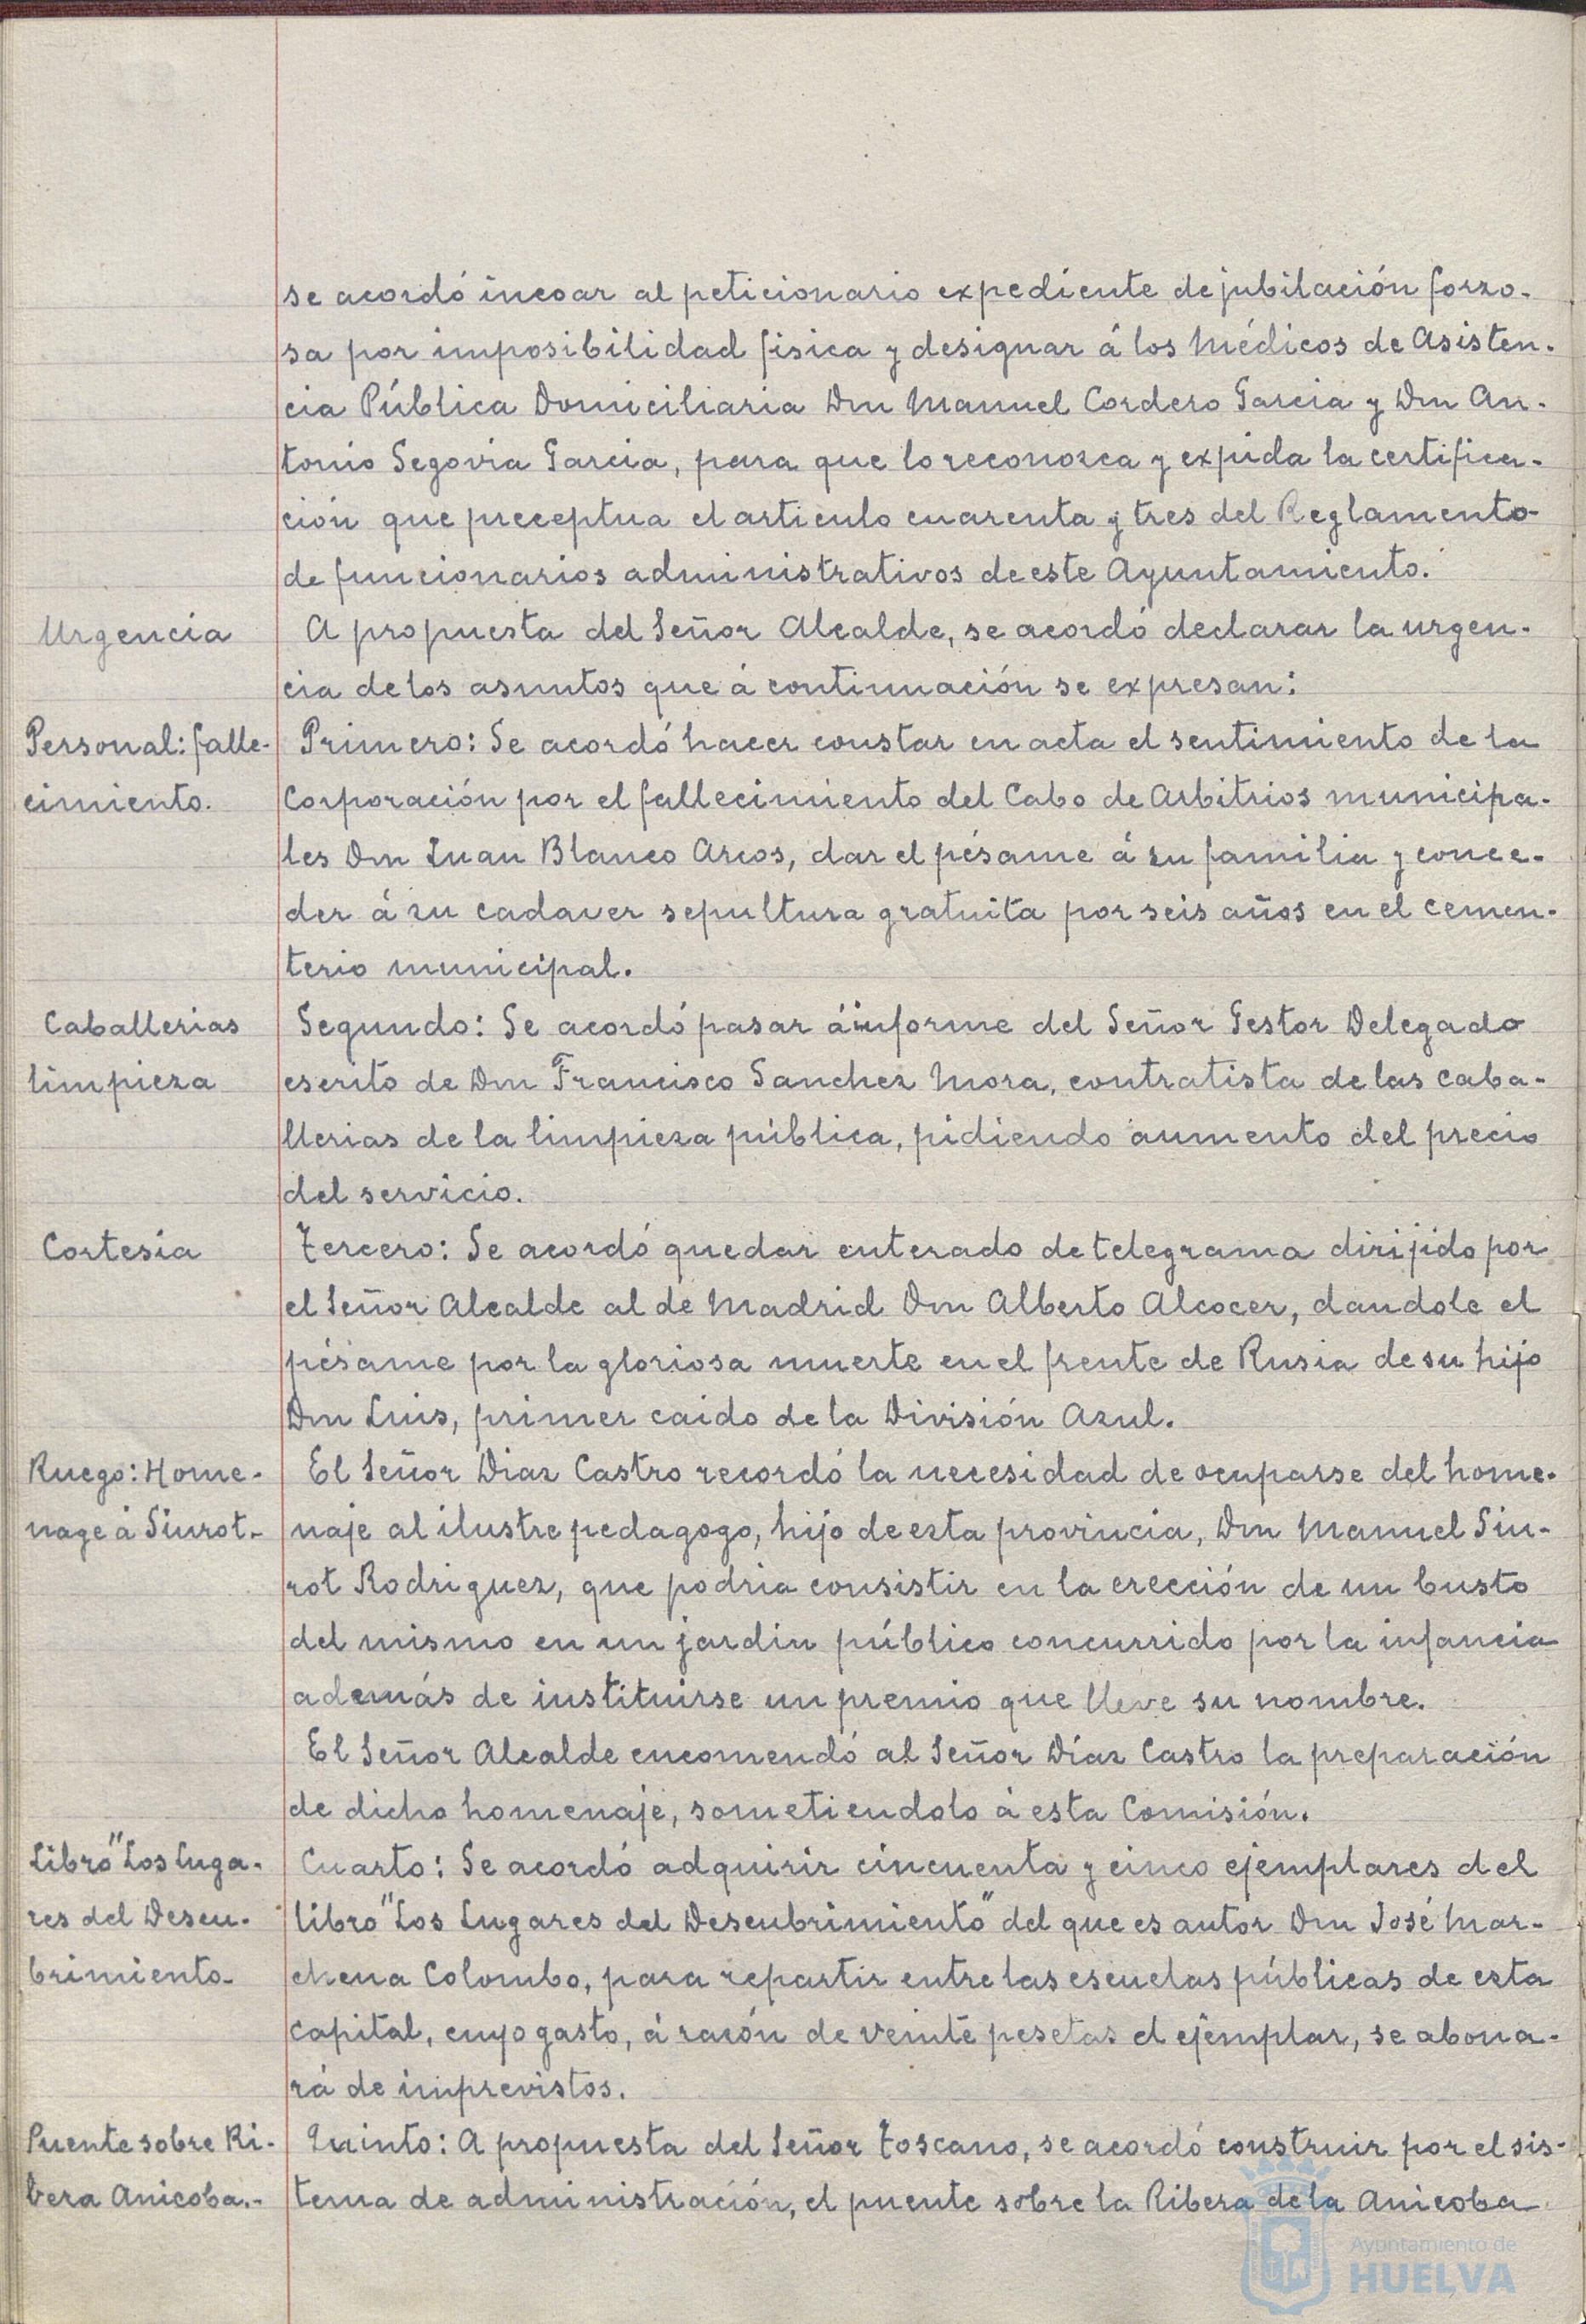 se acordó incoar al peticionario expediente de jubilación forzo-
sa por imposibilidad fisica y designar á los Médicos de Asisten-
cia Pública Domiciliaria Don Manuel Cordero Garcia y Don An-
tonio Segovia Garcia, para que lo reconozca y expida la certifica-
ción que preceptua el articulo cuarenta y tres del Reglamento
de funcionarios administrativos de este Ayuntamiento.
Urgencia
A propuesta del Señor Alcalde, se acordó declarar la urgen-
cia de los asuntos que á continuación se expresan:
Personal: falle-
cimiento.
Primero: Se acordó hacer constar en acta el sentimiento de la
Corporación por el fallecimiento del Cabo de Arbitrios municipa-
les Don Juan Blanco Arcos, dar el pésame á su familia y conce-
der á su cadaver sepultura gratuita por seis años en el cemen-
terio municipal.
Caballerias
limpieza
Segundo: Se acordó pasar á informe del Señor Gestor Delegado
escrito de Don Francisco Sanchez Mora, contratista de las caba-
llerias de la limpieza pública, pidiendo aumento del precio
del servicio.
Cortesia
Tercero: Se acordó quedar enterado de telegrama dirijido por
el Señor Alcalde al de Madrid Don Alberto Alcocer, dandole el
pésame por la gloriosa muerte en el frente de Rusia de su hijo
Don Luis, primer caido de la División Azul.
Ruego: Home-
nage á Siurot.-
El Señor Diaz Castro recordó la necesidad de ocuparse del home-
naje al ilustre pedagogo, hijo de esta provincia, Don Manuel Siu-
rot Rodriguez, que podria consistir en la erección de un busto
del mismo en un jardin público concurrido por la infancia
además de instituirse un premio que lleve su nombre.
El Señor Alcalde encomendó al Señor Díaz Castro la preparación
de dicho homenaje, sometiendolo á esta Comisión.
Libro "Los Luga-
res del Descu-
brimiento-
Cuarto: Se acordó adquirir cincuenta y cinco ejemplares del
libro "Los Lugares del Descubrimiento" del que es autor Don José Mar-
chena Colombo, para repartir entre las escuelas públicas de esta
capital, cuyo gasto, á razón de veinte pesetas el ejemplar, se abona-
rá de imprevistos.
Puente sobre Ri-
bera Anicoba.-
Quinto: A propuesta del Señor Toscano, se acordó construir por el sis-
tema de administración, el puente sobre la Ribera de la Anicoba
Ayuntamiento de
HUELVA